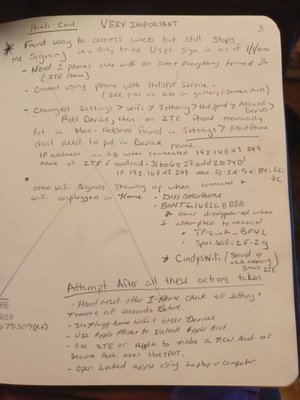 Hints Cont. VERY IMPORTANT
3
* Found way to access web but still stops
me signing in. Only tried USPS Sign in as of
- Need 2 phones one with no sim & everything turned off
(ZTE Phone)
- Connect using phone with Hotspot Service.
(See pics on LG in gallery/screenshots)
- Changed Settings > Wifi > Tethering/Hotspot > Allowed Devices,
Add Device, then on ZTE Phone manually
Put in Mac-Address found in Settings > About Phone
dont need to put in Device name
IP address on LG when connected 192.168.43.249
name of ZTE (android-3bb6e2fadd2b740)
IP 192.168.43.249 mac. fc:2d:5e:84:
- Other wifi signals showing up when connected &
wifi unplugged in Home
• DIII Smarthome
• BHNTG1682G
2 other disappeared when
I attempted to record
• TP-Link-BF4C
• SpecWifi-2F-2g
* CindysWifi/Stored
while
small ZTE
Attempt After all these actions taken
- Hard reset other I-Phone Check all settings &
remove all accounts Before.
- Unplug home wifi & other Devices.
- Use Apple Phone to unlock Apple Acct.
- Use ZTE or Apple to make a new Acct or
Secure Acct over Hotspot.
- Open Locked apple using Laptop or computer
BB
BBB
675309(x2)